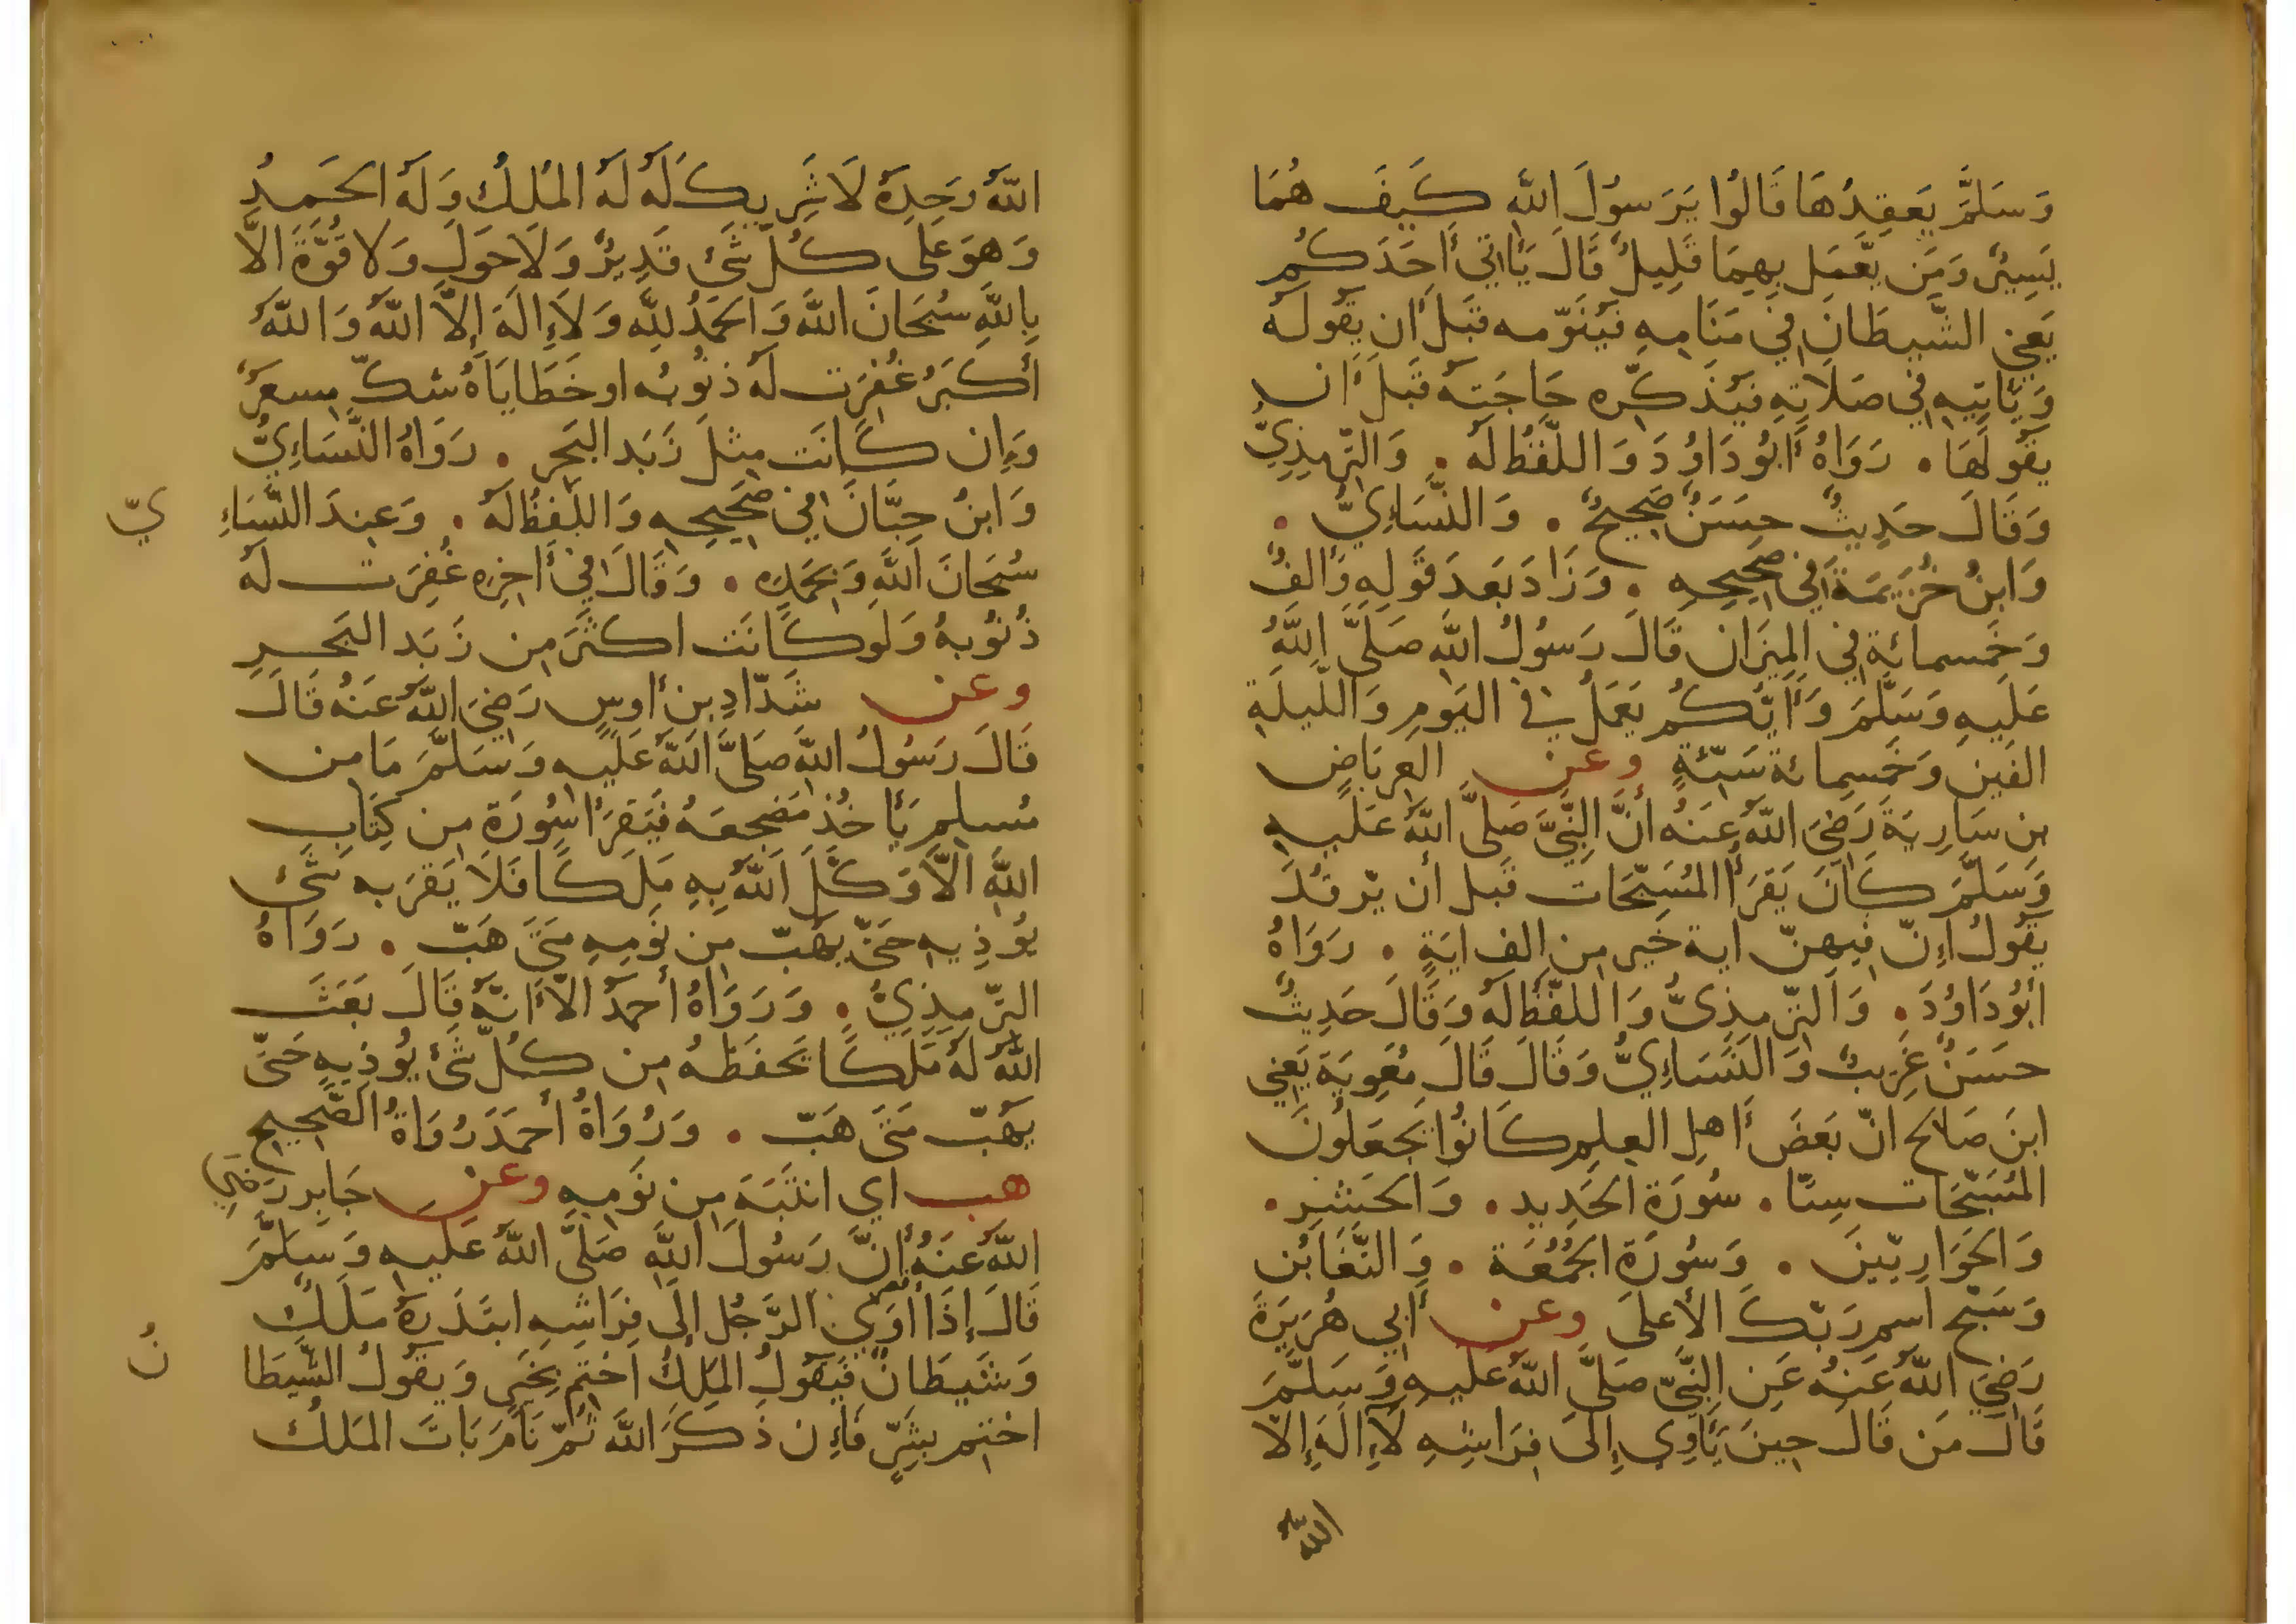 وَسَلَّمَ يَعقِدُهَا قَالُوا يَرَسُولَ اللهِ كَيفَ هُمَا
يَسِيرٌ وَمَن يَعمَل بِهِمَا قَلِيلٌ قَالَ يَأاتي أَحَدَكُم
يَعني الشَّيطَانَ فِي مَنَامِهِ فَيُنَوِّمه قَبلَ أَن يَقُولَهُ
وَيَأتِيهِ فِي صَلَاتِهِ فَيُذَكِّره حَاجَتَهُ قَبلَ أَن
يَقُولَهَا . رَوَاهُ أَبُودَاوُدَ وَاللَّفظُ لَهُ . وَالتِّرمِذِيُّ
وَقَالَ حَدِيثٌ حَسَنٌ صَحِيحٌ . وَالنَّسَاءِيُّ .
وَابنُ خُزَيمَةَ فِي صَحِيحِهِ . وَزَادَ بَعدَ قَولِهِ وَأَلفٌ
وَخَمسمائَةٍ فِي المِيزَان قَالَ رَسُولُ اللهِ صَلَّى اللهُ
عَلَيهِ وَسَلَّمَ وَأَيُّكُم يَعمَلُ فِي اليَومِ وَاللَّيلَةِ
الفَين وَخَمسِمائة سَيّئَةٍ وعن العِربَاضِ
بن سَارِيَةَ رَضِيَ اللهُ عَنهُ أَنَّ النَّبِيَّ صَلَّى اللهُ عَلَيهِ
وَسَلَّمَ كَانَ يَقرَأُ المُسَبِّحَات قَبل أَن يَرقُدَ
يَقُولُ إِنّ فِيهِنّ اية خَير مِن الف ايَةٍ . رَوَاهُ
أَبُودَاوُدَ . وَالتِّرمِذِىُّ وَاللَّفظُ لَهُ وَقَالَ حَدِيثٌ
حَسَنٌ غَرِيبٌ وَالنَّسَاءِيُّ وَقَالَ قَالَ مُعَوِيَةَ يَعنِي
ابنَ صَالح انّ بَعضَ أَهلِ العِلمِ كَانُوا يَجعَلُونَ
المُسَبِّحَات سِتًا . سُورَة الحَدِيد . وَالحَشرِ .
وَالحَوَارِيّينَ . وَسُورَة الجُمُعَة . وَالتَّغَابُن
وَسَبّح اسم رَبّكَ الأَعلَى وعن أَبِي هُرَيرَةَ
رَضِيَ اللهُ عَنهُ عَنِ النَّبِيّ صَلَّى اللهُ عَلَيهِ وَسَلَّمَ
قَالَ مَن قَالَ حِينَ يَأوِي إِلَى فِرَاشِهِ لَاإِلَهَ إِلَّا
اللهُ
اللهُ وَحدَهُ لَا شَرِيكَ لَهُ لَهُ المُلكُ وَلَهُ الحَمدُ
وَهوَ عَلَى كُلّ شَيء قَدِيرٌ وَلَاحَولَ وَلَاقُوَّةَ الاَّ
بِاللهِ سُبحَانَ اللهِ وَالحَمدُ لِلَّهِ وَلَاإِلَهَ إِلاَّ اللهُ وَاللهُ
أَكبَرُ غُفِرَت لَهُ ذنُوبُه او خَطَايَاهُ شكّ مِسعَرٌ
وَإِن كَانَت مِثلَ زَبَد البَحرِ . رَوَاهُ النَّسَاءِيُّ
وَابنُ حِبَّانَ فِي صَحِيحِهِ وَاللَّفظُ لَهُ . وَعِندَ النَّسَاءِ
يّ
سُبحَانَ اللهِ وَبِحَمدِهِ . وَقَالَ فِي أَخِرِه غُفِرَت لَهُ
ذُنُوبهُ وَلَو كَانَت اكثَرَ مِن زَبَد البَحرِ
وعن شَدّادِ بن أَوسٍ رَضِيَ اللهُ عَنهُ قَالَ
قَالَ رَسُولُ اللهِ صَلَّى اللهُ عَلَيهِ وَسَلَّمَ مَا مِن
مُسلِمٍ يَأخُذ مَضجعَهُ فَيَقرَأُ سُورَة مِن كِتَابِ
اللهِ الاَّ وَكَّلَ اللهُ بِهِ مَلَكًا فَلَا يَقرَبه شَىء
يُوذِيهِ حَتَّى يَهُبّ مِن نَومِهِ مَتَى هَبّ . رَوَاهُ
التِّرمِذِيُّ . وَرَوَاهُ أَحمَدُ الاَّأَنَّهُ قَالَ بَعَثَ
اللهُ لَهُ مَلَكًا يَحفَظهُ مِن كُلّ شَيء يُوذِيهِ حَتَّى
يَهُبّ مَتَى هَبّ . وَرُوَاةُ أَحمَدَ رُوَاةُ الصَّحِيحِ
هب اي انتَبَهَ مِن نَومِهِ وعن جَابِرٍ رَضِيَ
اللهُ عَنهُ أَنَّ رَسُولَ اللهِ صَلَّى اللهُ عَلَيهِ وَسَلَّمَ
قَالَ إِذَا أَوَى الرَّجُل إِلَى فِرَاشِهِ ابتَدَرَهُ مَلَكٌ
وَشَيطَانٌ فَيَقُولُ المَلَكُ اختِم بِخَيرٍ وَيَقُولُ الشَّيطَا
نُ
اختِم بِشَرٍّ فَإِن ذَكَرَ اللهَ ثُمّ نَامَ بَاتَ المَلَكُ